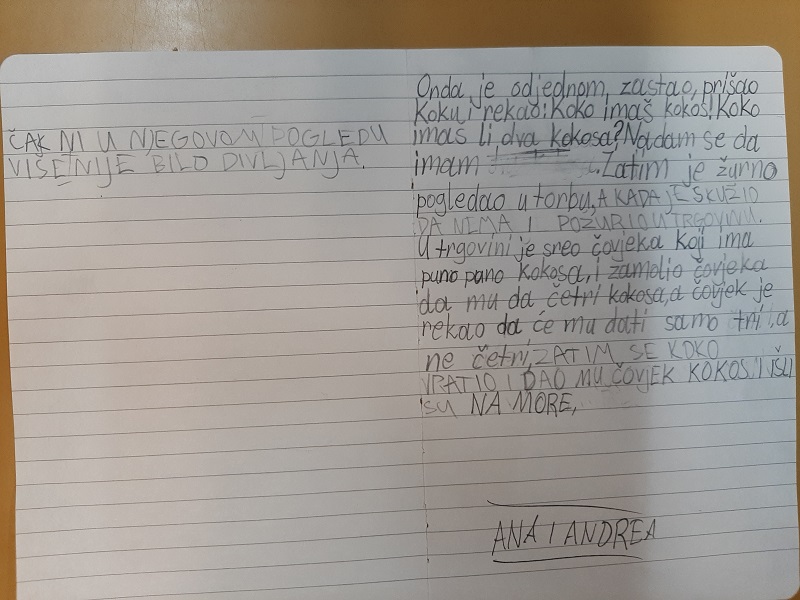 ČAK NI U NJEGOVOM POGLEDU
VIŠE NIJE BILO DIVLJANJA.
Onda je odjednom, zastao, prišao
Koku i rekao: Koko imaš kokos! Koko
imas li dva kokosa? Nadam se da
imam .Zatim je žurno
pogledao u torbu, A KADA JE SKUŽIO
DA NIMA I POŽURIO U TRGOVINU.
U trgovini je sreo čovjeka koji ima
puno puno kokosa, i zamolio čovjeka
da mu da četri kokosa, a čovjek je
rekao da će mu dati samo tri, a
ne četri, ZATIM SE KOKO
VRATIO I DAO MU ČOVJEK KOKOS. I IŠLI
SU NA MORE,
ANA I ANDREA